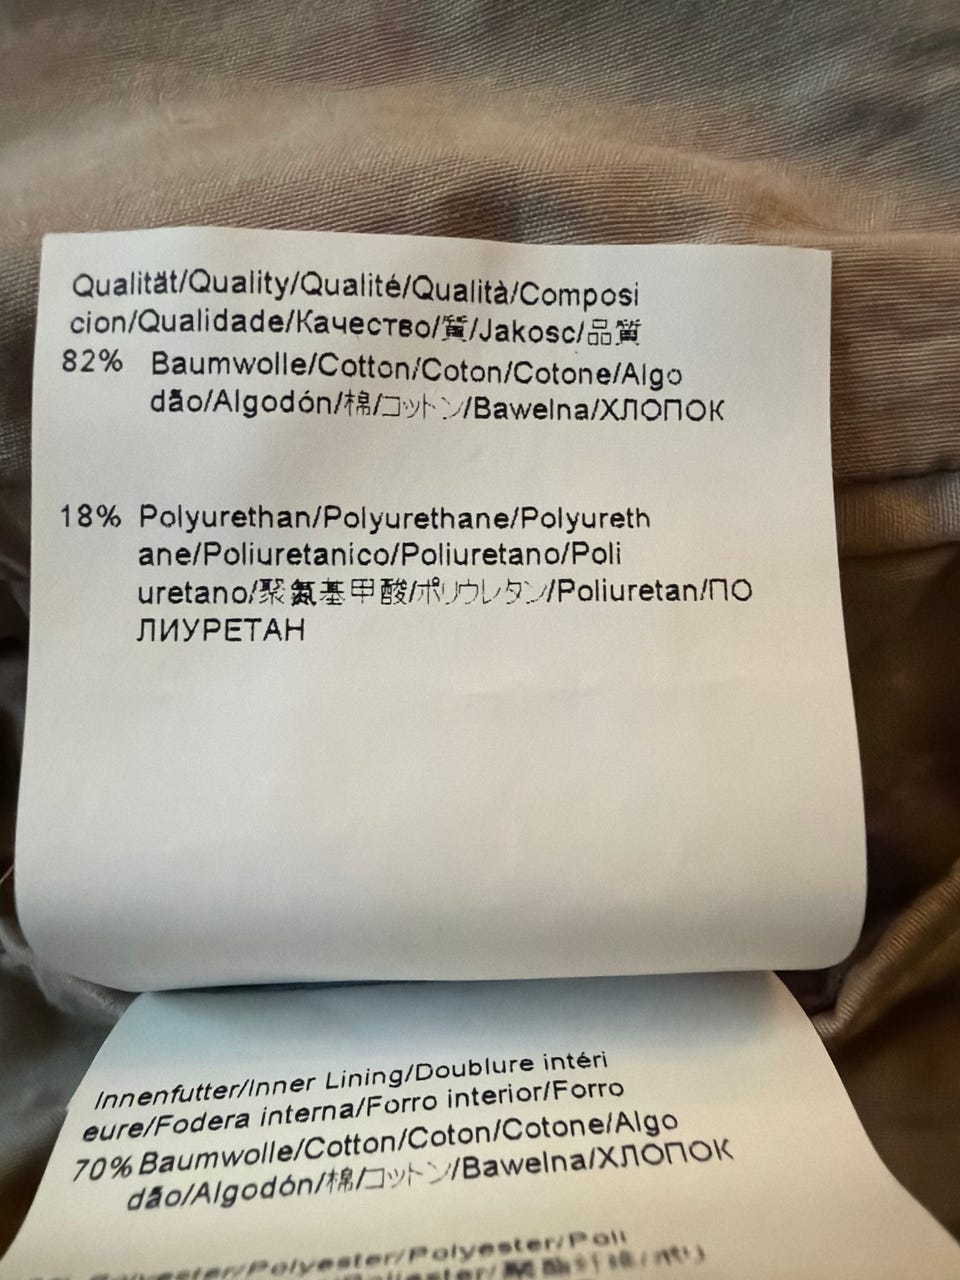 Qualität/Quality/Qualité/Qualità/Composi
cion/Qualidade/Качество/質/Jakosc/品質
82% Baumwolle/Cotton/Coton/Cotone/Algo
dão/Algodón/棉/コットン/Bawelna/ХЛОПОК
18% Polyurethan/Polyurethane/Polyureth
ane/Poliuretanico/Poliuretano/Poli
uretano/聚氨基甲酸/ポリウレタン/Poliuretan/ПО
ЛИУРЕТАН
Innenfutter/Inner Lining/Doublure intéri
eure/Fodera interna/Forro interior/Forro
70% Baumwolle/Cotton/Coton/Cotone/Algo
dão/Algodón/棉/コットン/Bawelna/ХЛОПОК
Polyester/Polyester/Polyester/Poli